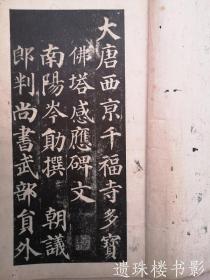 大唐西京千福寺多寶
佛塔感應碑文
南陽岑勛撰 朝議
郎判尚書武部員外
遗珠楼书影